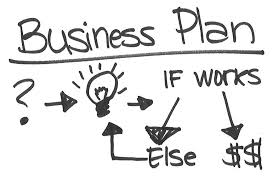 Business Plan
? IF WORKS
Else $$